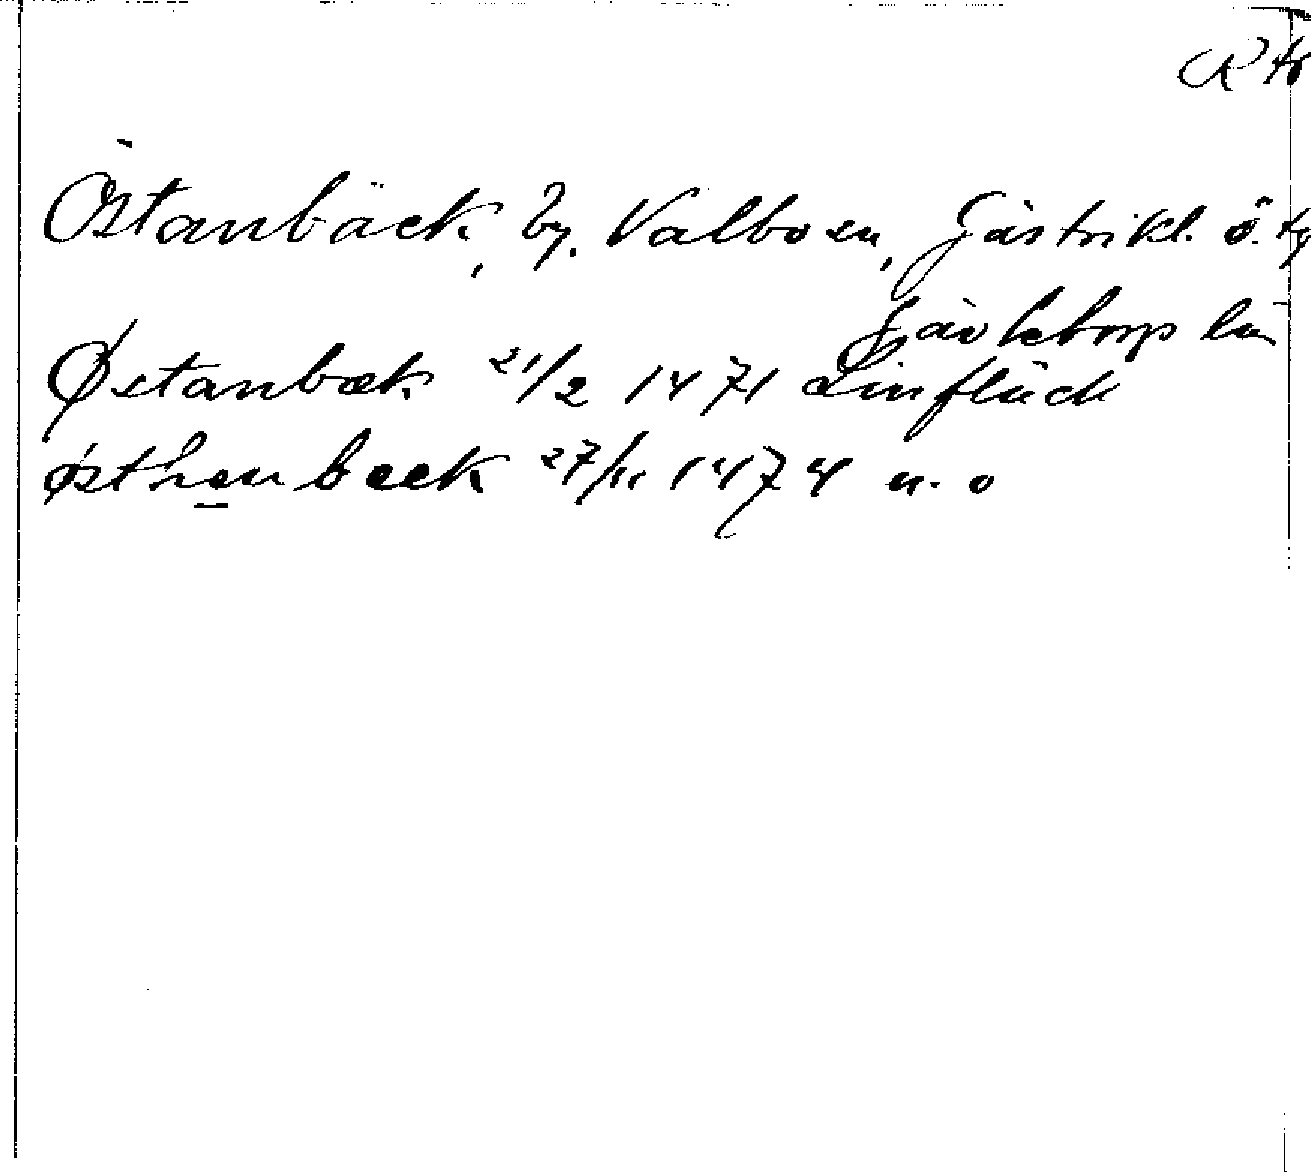 Östanbäck, by, Valbo sn, Gästrikl. ö. tg
Gävleborgs län
Østanbæk 21/2 1471
østhenbeek 27/11 1474 u. o